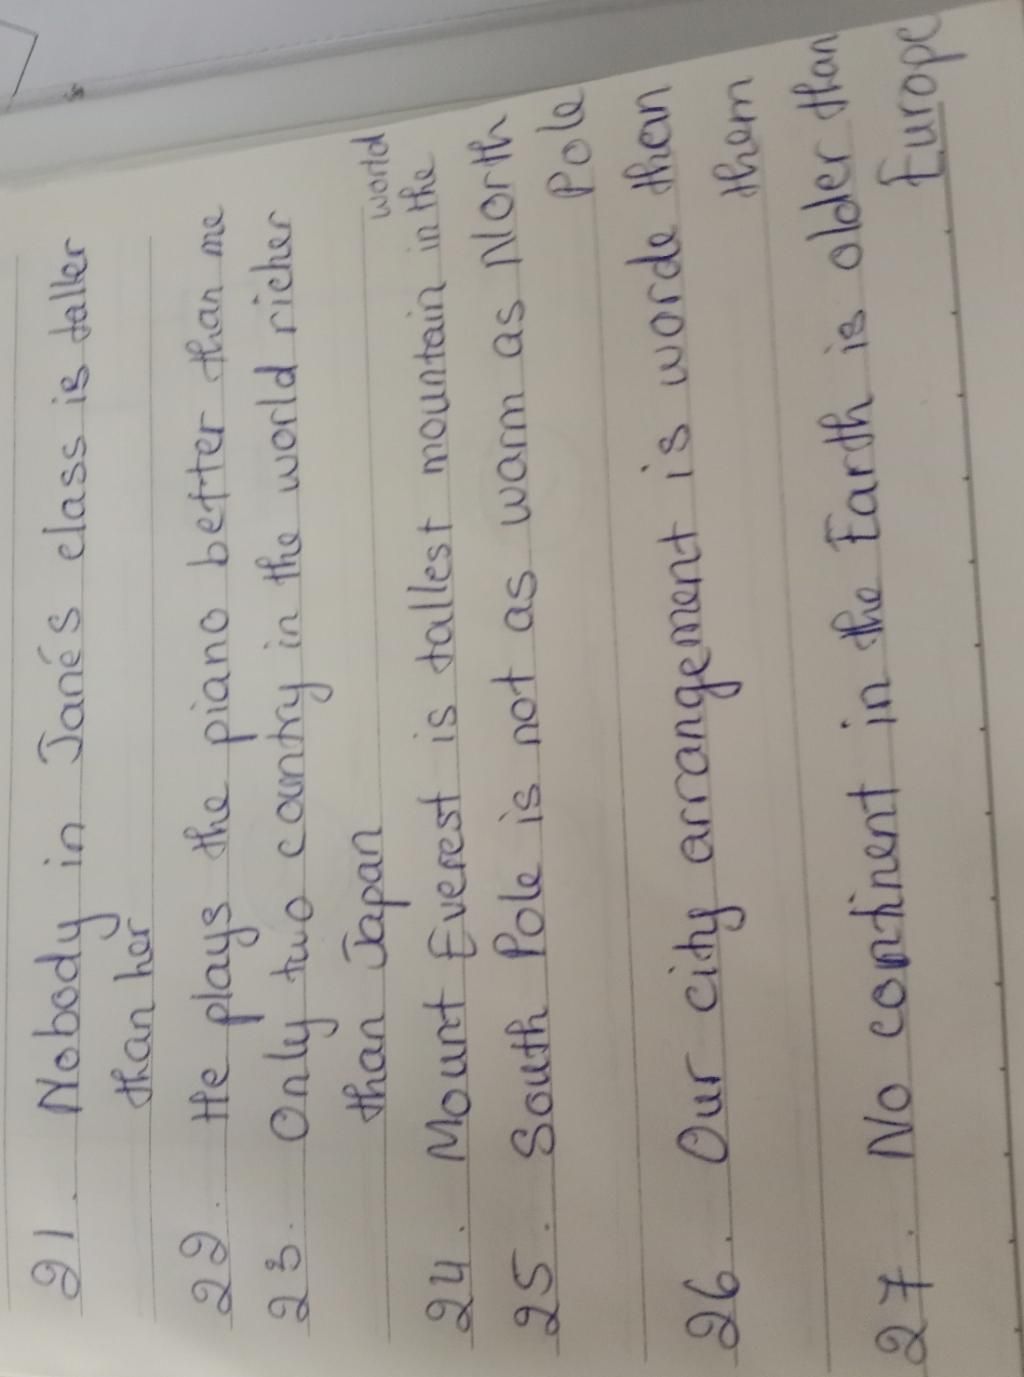 21. Nobody in Jane's class is taller
than her
22. He plays the piano better than me
23. Only two country in the world richer
than Japan
24. Mount Everest is tallest mountain in the world
25. South Pole is not as warm as North
Pole
26. Our city arrangement is worde than
them
27. No continent in the Earth is older than
Europe